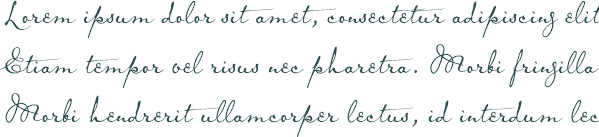 Lorem ipsum dolor sit amet, consectetur adipiscing elit
Etiam tempor vel risus nec pharetra. Morbi fringilla
Morbi hendrerit ullamcorper lectus, id interdum lec